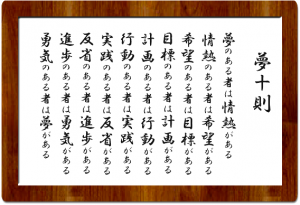 夢十則
夢のある者は情熱がある
情熱のある者は希望がある
希望のある者は目標がある
目標のある者は計画がある
計画のある者は行動がある
行動のある者は実践がある
実践のある者は反省がある
反省のある者は進歩がある
進歩のある者は勇気がある
勇気のある者は夢がある